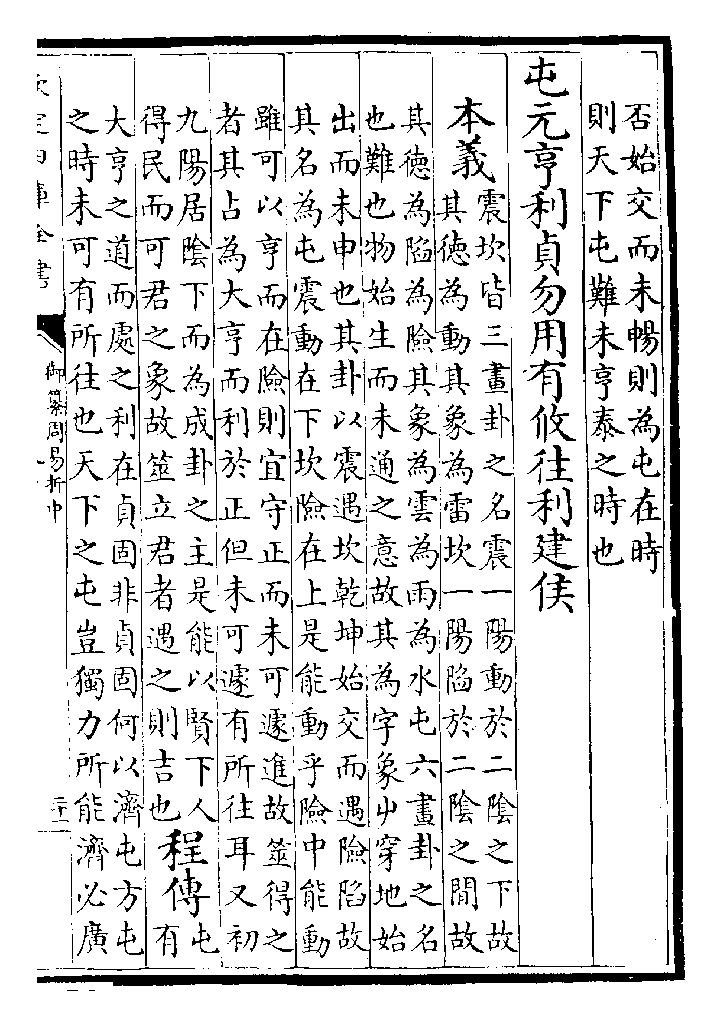 否始交而未暢則為屯在時
則天下屯難未亨泰之時也
屯元亨利貞勿用有攸往利建侯
本義
震坎皆三畫卦之名震一陽動於二陰之下故
其德為動其象為雷坎一陽陷於二陰之間故
其德為陷為險其象為雲為雨為水屯六畫卦之名
也難也物始生而未通之意故其為字象屮穿地始
出而未申也其卦以震遇坎乾坤始交而遇險陷故
其名為屯震動在下坎險在上是能動乎險中能動
雖可以亨而在險則宜守正而未可遽進故筮得之
者其占為大亨而利於正但未可遽有所往耳又初
九陽居陰下而為成卦之主是能以賢下人
得民而可君之象故筮立君者遇之則吉也
程傳
屯
有
大亨之道而處之利在貞固非貞固何以濟屯方屯
之時未可有所往也天下之屯豈獨力所能濟必廣
欽定四庫全書
御纂周易折中